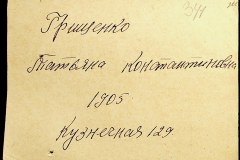 Грищенко
Татьяна Константиновна
1905
Кузнечная 129.